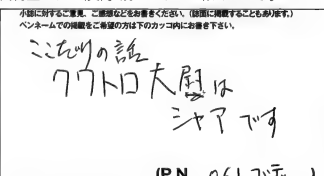 小誌に対するご意見、ご感想などをお書きください。(誌面に掲載することもあります。)
ペンネームでの掲載をご希望の方は下のカッコ内にお書き下さい。
ここだけの話
クワトロ大尉は
シャアです
(P.N.